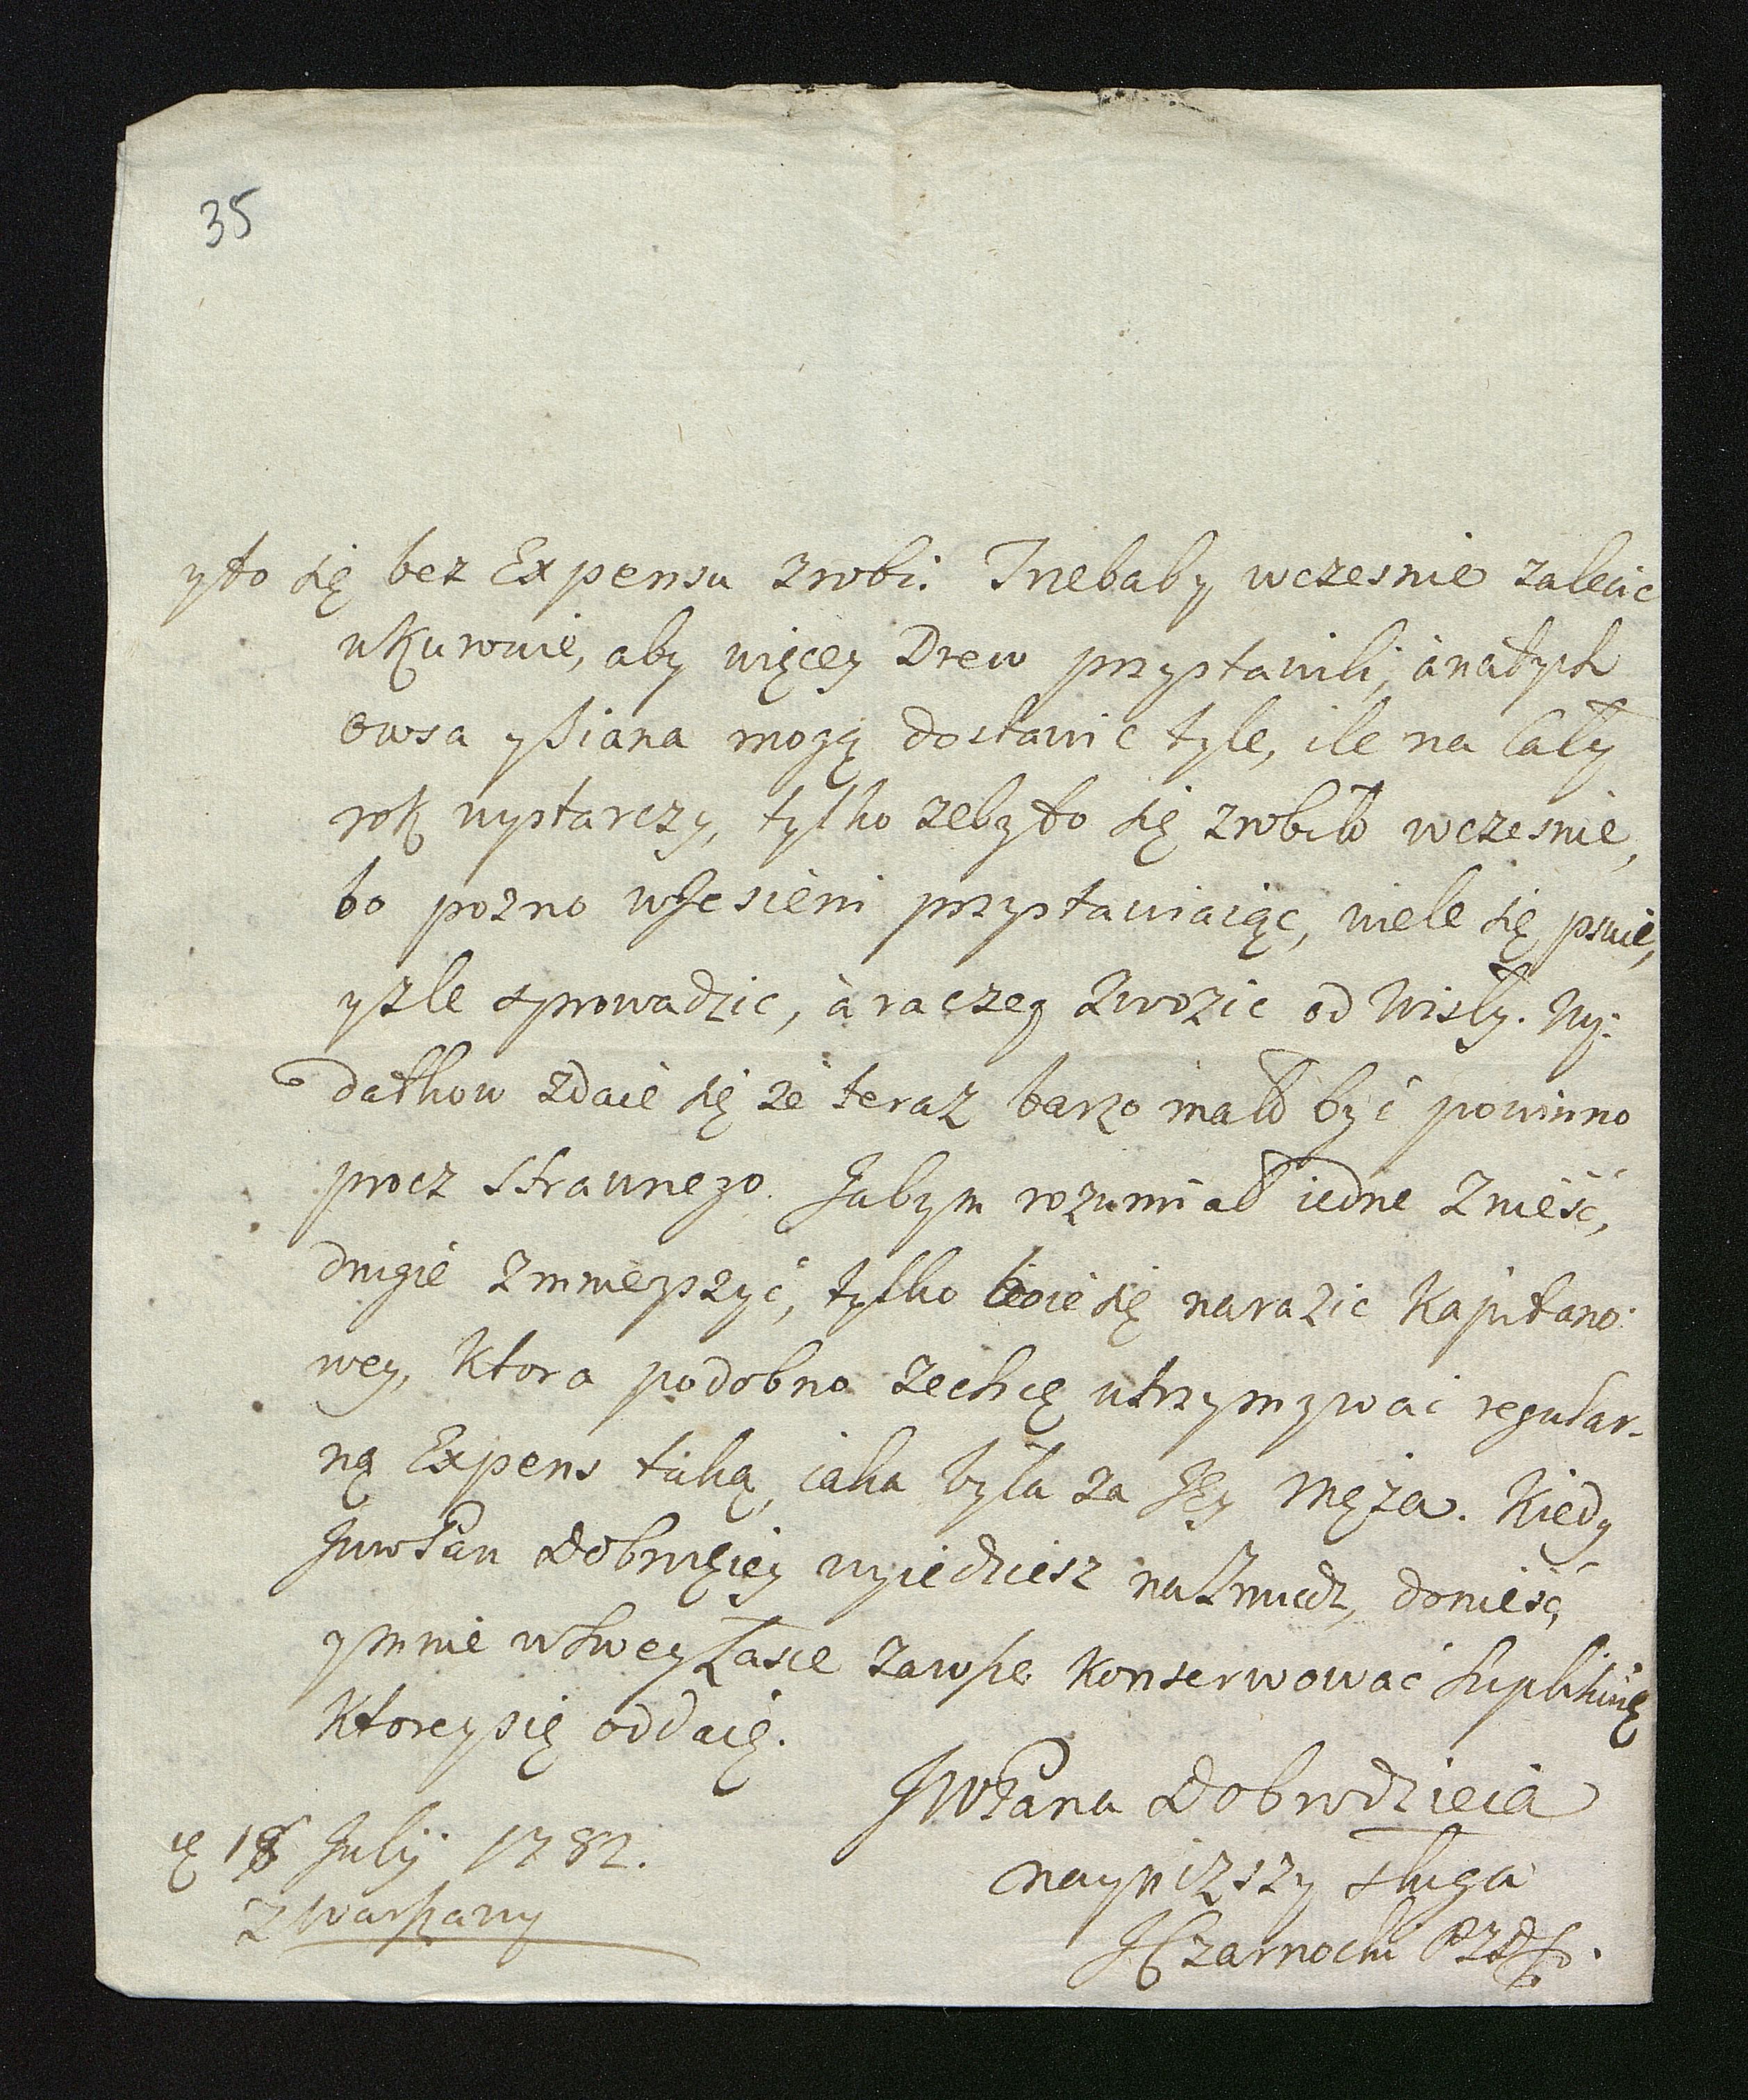 35
yto się bez Expensu zrobi. Trzebaby wczesnie zalecic
w Kurowie, aby więcey Drew przystawili, a na tych
owsa y siana mogą dostawic tyle, ile na Cały
rok wystarczy, tylko zeby to się zrobiło wczesnie,
bo pozno w Jesieni przystawiaiąc, wiele się psuie,
y zle sprowadzic, à raczey zwozic od Wisły. Wy-
datkow zdaie się ze teraz barzo mało być powinno
procz Strawnego. Jabym rozumiał iedne znieść,
drugie zmnieyszyć, tylko boie się narazic Kapitano-
wey, Ktora podobno zechcę utrzymywać regular-
ną Expens taką, iaka była za Jey Męża. Kiedy
JWPan Dobrodziey wyiedziesz na Zmudz, donieść,
y mnie w Swey Łasce zawsze Konserwować suplikuię
Ktorey się oddaię.
JWPana Dobrodzieia
naynizszy sługa
JCzarnocki
18 Julij 1782.
z Warszawy